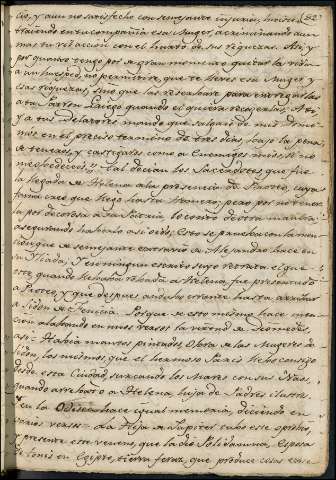 cio, y aun no satisfecho con semejante injuria, huiste
trayendo en tu compañia esa Muger, acriminando aun
mas tu vil accion con el hurto de sus riquezas. Assi, y
por quanto tengo por gran momento quitar la vida
a un huesped, no permitiré, que te lleves esa Muger y
esas riquezas, sino que las reservare para entregarlas
a tu Patron Griego quando el quiera recogerlas. A ti,
y a tus
mos en el preciso termino de tres dias, bajo la pena
de teneros, y castigaros como a Enemigos mios si no
me obedeceis". Tal decian los Sacerdotes, que fue
la llegada de Helena a la presencia de Proteo, cuya
fama creo que llego hasta Homero; pero por no tener-
la por decorosa a su Patria, lo conto de otra manera,
asegurando haberlo asi oido. Esto se prueba con la men-
cion que de semejante extravio de Alejandro hace en
su Yliada, y en ningun escrito suyo retrata el que
este quando llebaba robada a Helena, fue presentado
a Proteo, y que despues anduvo errante hasta arribar
a Sidon de Fenicia. Porque de esto mismo hace men-
cion alabando en unos versos la virtud de Diomedes,
asi = Habia mantos pintados Obra de las Mugeres de
Sidon, los mismos, que el hermoso Paris llebo consigo
desde esta Ciudad, surcando los Mares con sus Naos,
quando arrebató a Helena hija de Padres ilustres
en la Odisea hace igual memoria, diciendo en
varios versos = La Hija de Jupiter tubo este
y presente este veneno, que la dio Polidamna, Esposa
de Tonis en Egipto, tierra feraz, que produce